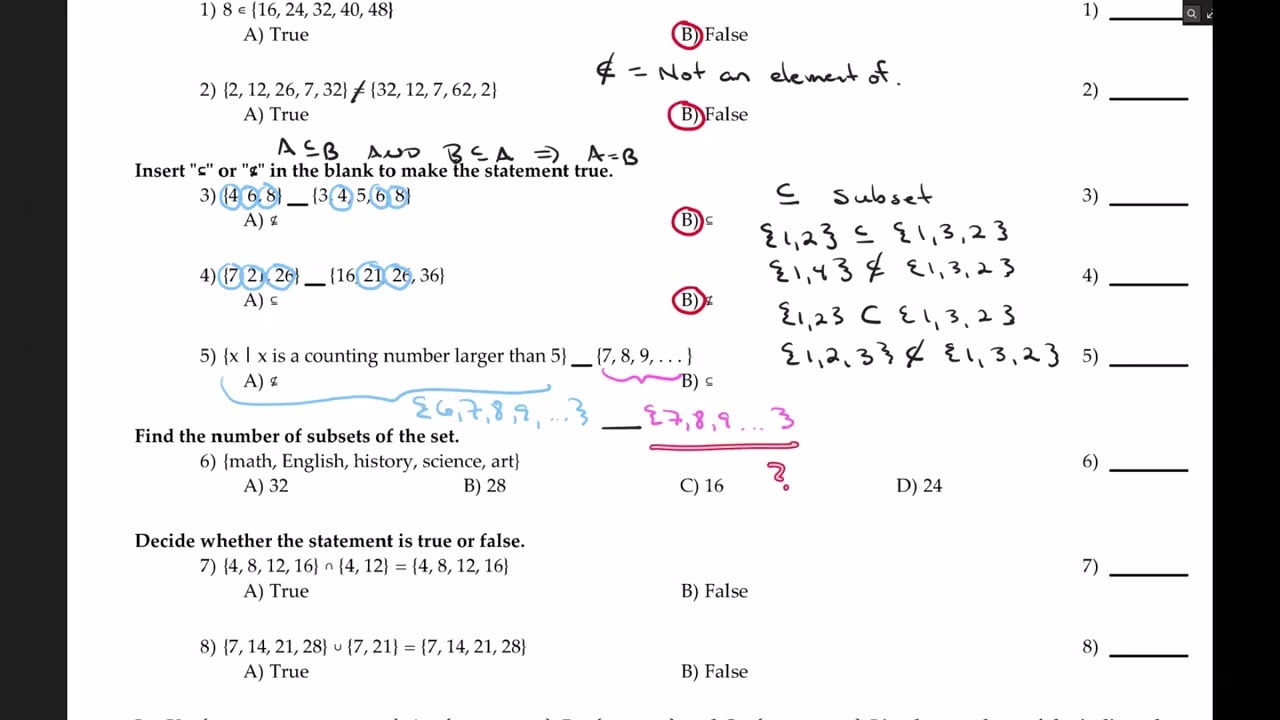 1) 8 ∈ {16, 24, 32, 40, 48} 1)
A) True B) False
∉ = Not an element of.
2) {2, 12, 26, 7, 32} ≠ {32, 12, 7, 62, 2} 2)
A) True B) False
A ⊆ B AND B ⊆ A ⇒ A = B
Insert "⊆" or "⊈" in the blank to make the statement true.
3) {4, 6, 8} __ {3, 4, 5, 6, 8} 3)
⊆ subset
A) ⊈ B) ⊆
{1,2} ⊆ {1,3,2}
{1,4} ⊈ {1,3,2}
4) {7, 21, 26} __ {16, 21, 26, 36} 4)
A) ⊆ B) ⊈
{1,2} ⊂ {1,3,2}
{1,2,3} ⊄ {1,3,2}
5) {x | x is a counting number larger than 5} __ {7, 8, 9, . . . } 5)
A) ⊈ B) ⊆
{6,7,8,9, ...} __ {7,8,9 ... }
Find the number of subsets of the set.
6) {math, English, history, science, art} 6)
?
A) 32 B) 28 C) 16 D) 24
Decide whether the statement is true or false.
7) {4, 8, 12, 16} ∩ {4, 12} = {4, 8, 12, 16} 7)
A) True B) False
8) {7, 14, 21, 28} ∪ {7, 21} = {7, 14, 21, 28} 8)
A) True B) False